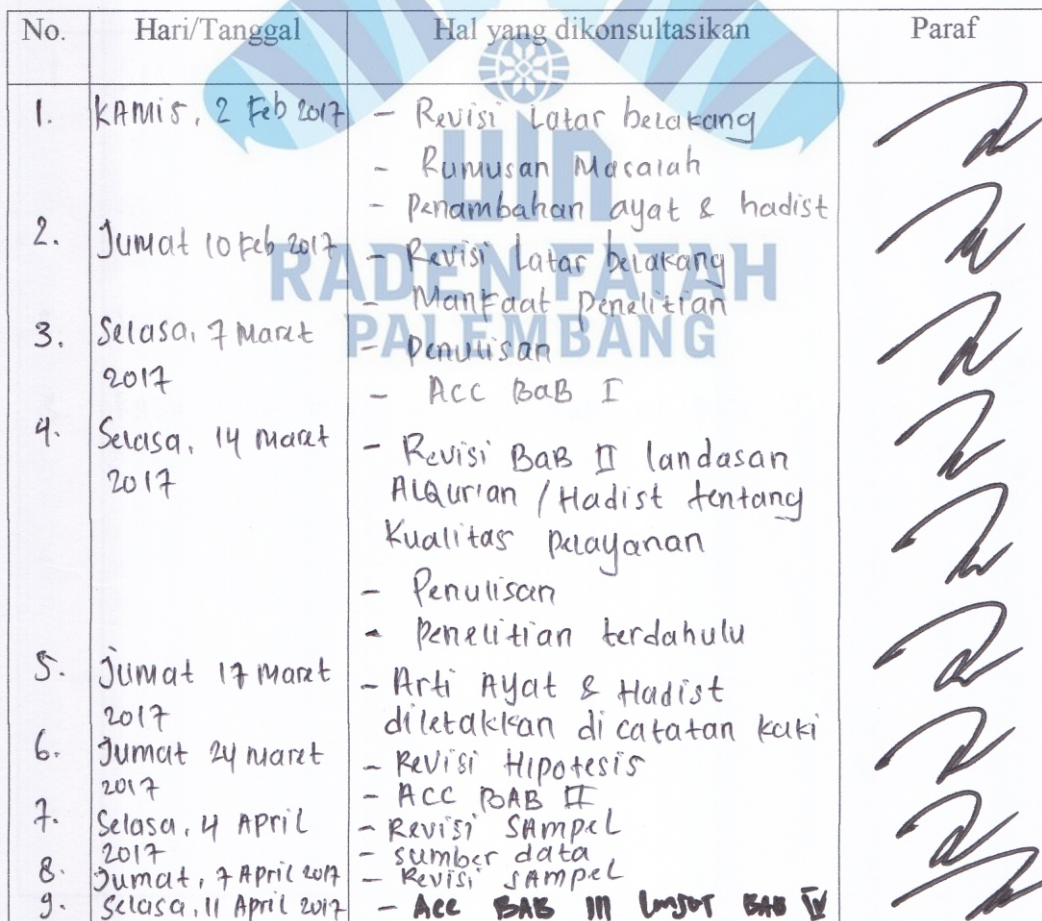 No. Hari/Tanggal Hal yang dikonsultasikan Paraf
1. KAMIS, 2 Feb 2017 - Revisi Latar belakang
- Rumusan Masalah
- Penambahan ayat & hadist
2. Jumat 10 Feb 2017 - Revisi Latar belakang
- Manfaat Penelitian
3. Selasa, 7 Maret - Penulisan
2017 - Acc BaB I
4. Selasa, 14 Maret - Revisi BaB II landasan
2017 AlQur'an / Hadist tentang
Kualitas pelayanan
- Penulisan
- Penelitian terdahulu
5. Jumat 17 Maret - Arti Ayat & Hadist
2017 diletakkan di catatan kaki
6. Jumat 24 Maret - Revisi Hipotesis
2017 - ACC BAB II
7. Selasa, 4 April - Revisi SAmpel
2017 - sumber data
8. Jumat, 7 April 2017 - Revisi SAmpel
9. Selasa, 11 April 2017 - Acc BAB III lanjut BAB IV
uin
RADEN FATAH
PALEMBANG